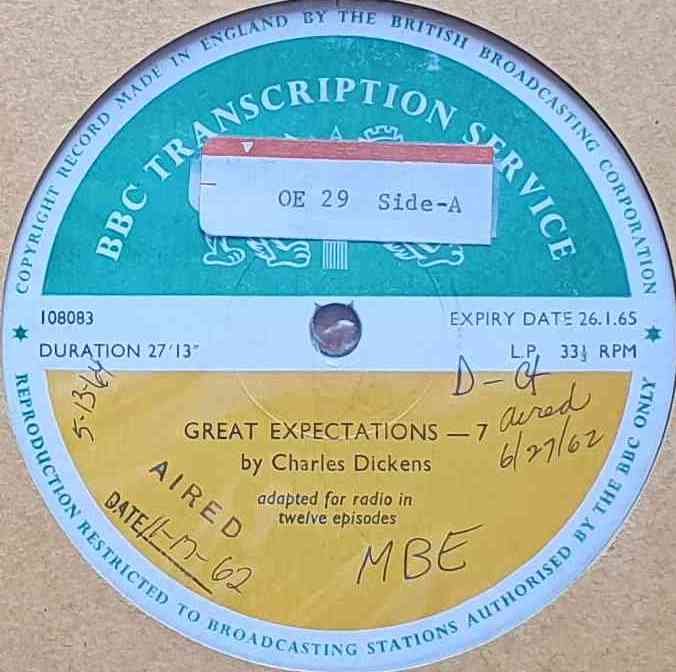 COPYRIGHT RECORD MADE IN ENGLAND BY THE BRITISH BROADCASTING CORPORATION
BBC TRANSCRIPTION SERVICE
OE 29 Side-A
108083
EXPIRY DATE 26.1.65
DURATION 27'13"
L.P. 33⅓ RPM
5-13-64
aired
6/27/62
GREAT EXPECTATIONS — 7
by Charles Dickens
adapted for radio in
twelve episodes
AIRED
DATE
MBE
REPRODUCTION RESTRICTED TO BROADCASTING STATIONS AUTHORISED BY THE BBC ONLY